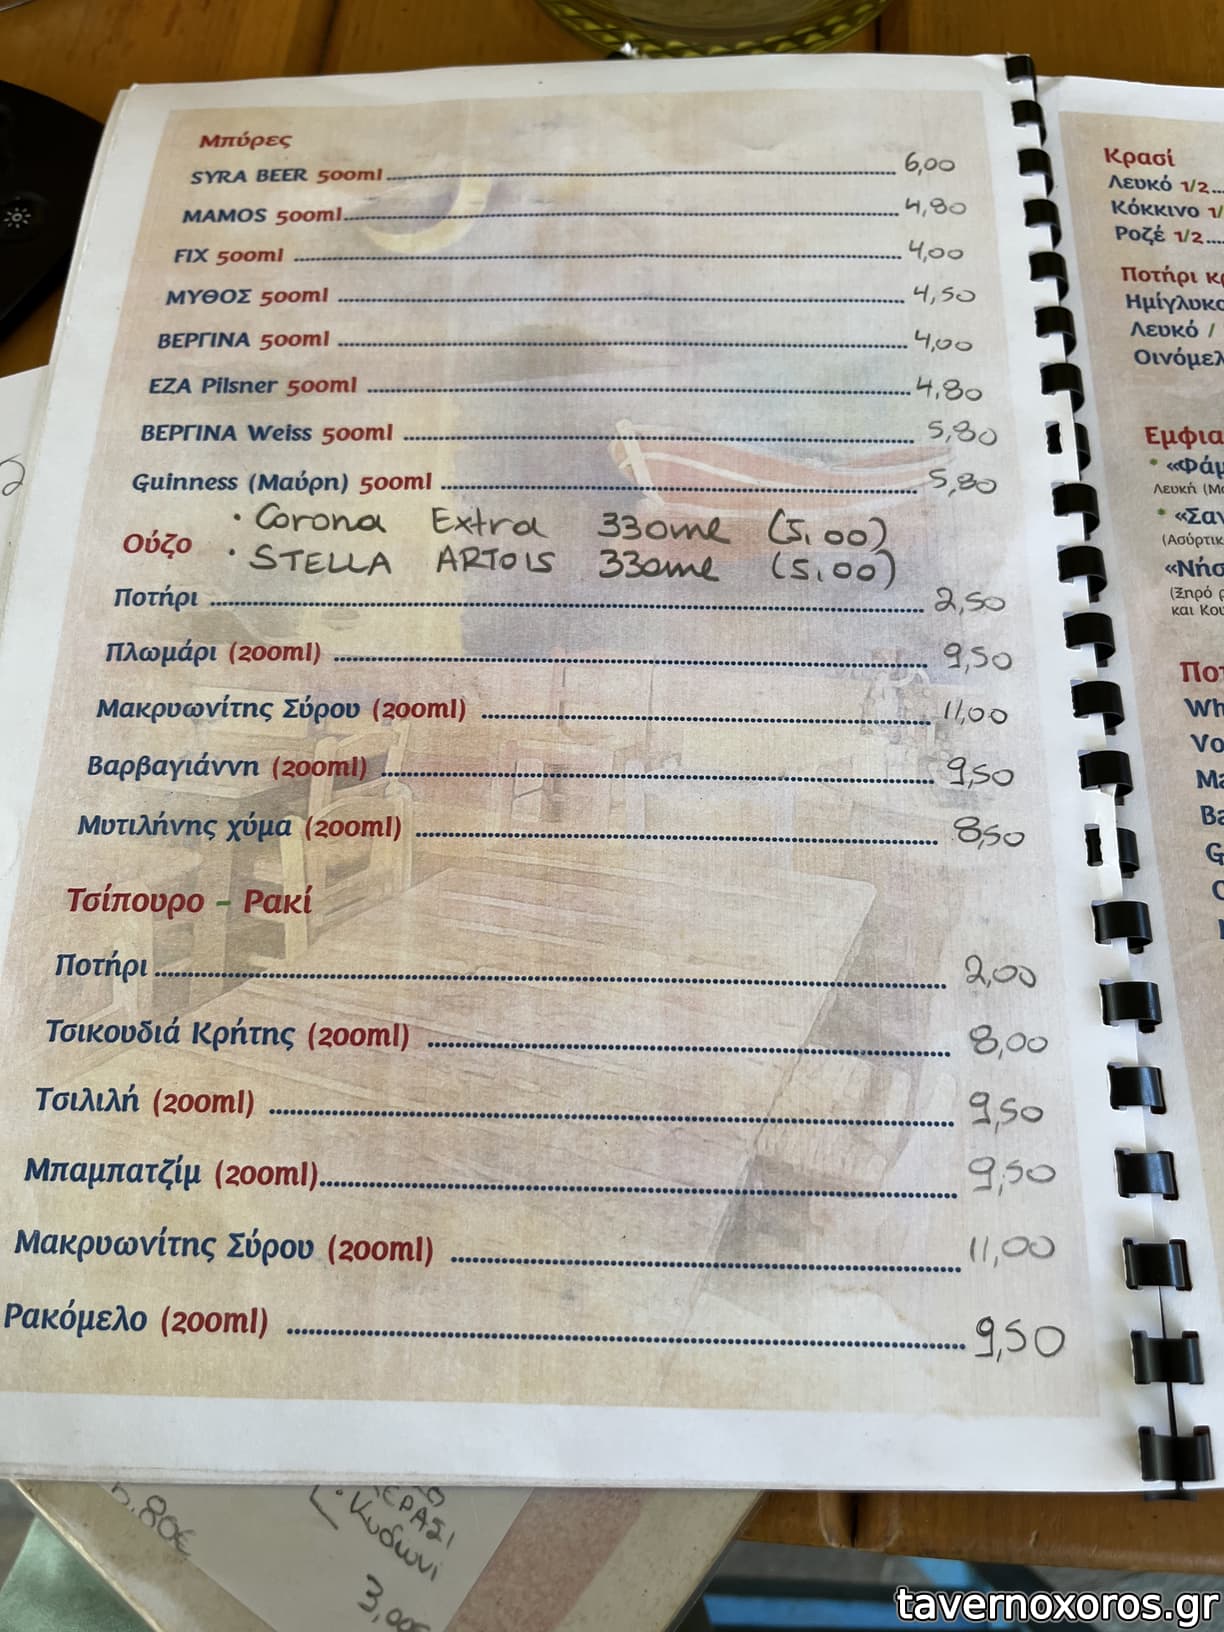 Μπύρες
SYRA BEER 500ml 6,00
MAMOS 500ml 4,80
FIX 500ml 4,00
ΜΥΘΟΣ 500ml 4,50
ΒΕΡΓΙΝΑ 500ml 4,00
EZA Pilsner 500ml 4,80
ΒΕΡΓΙΝΑ Weiss 500ml 5,80
Guinness (Μαύρη) 500ml 5,80
· Corona Extra 330ml (5,00)
Ούζο
· STELLA ARTOIS 330ml (5,00)
Ποτήρι 2,50
Πλωμάρι (200ml) 9,50
Μακρυωνίτης Σύρου (200ml) 11,00
Βαρβαγιάννη (200ml) 9,50
Μυτιλήνης χύμα (200ml) 8,50
Τσίπουρο - Ρακί
Ποτήρι 2,00
Τσικουδιά Κρήτης (200ml) 8,00
Τσιλιλή (200ml) 9,50
Μπαμπατζίμ (200ml) 9,50
Μακρυωνίτης Σύρου (200ml) 11,00
Ρακόμελο (200ml) 9,50
Κρασί
Λευκό 1/2
Κόκκινο
Ροζέ 1/2
Ποτήρι
Λευκό /
Λευκή
και
· Κυδωνι
3,00€
tavernoxoros.gr